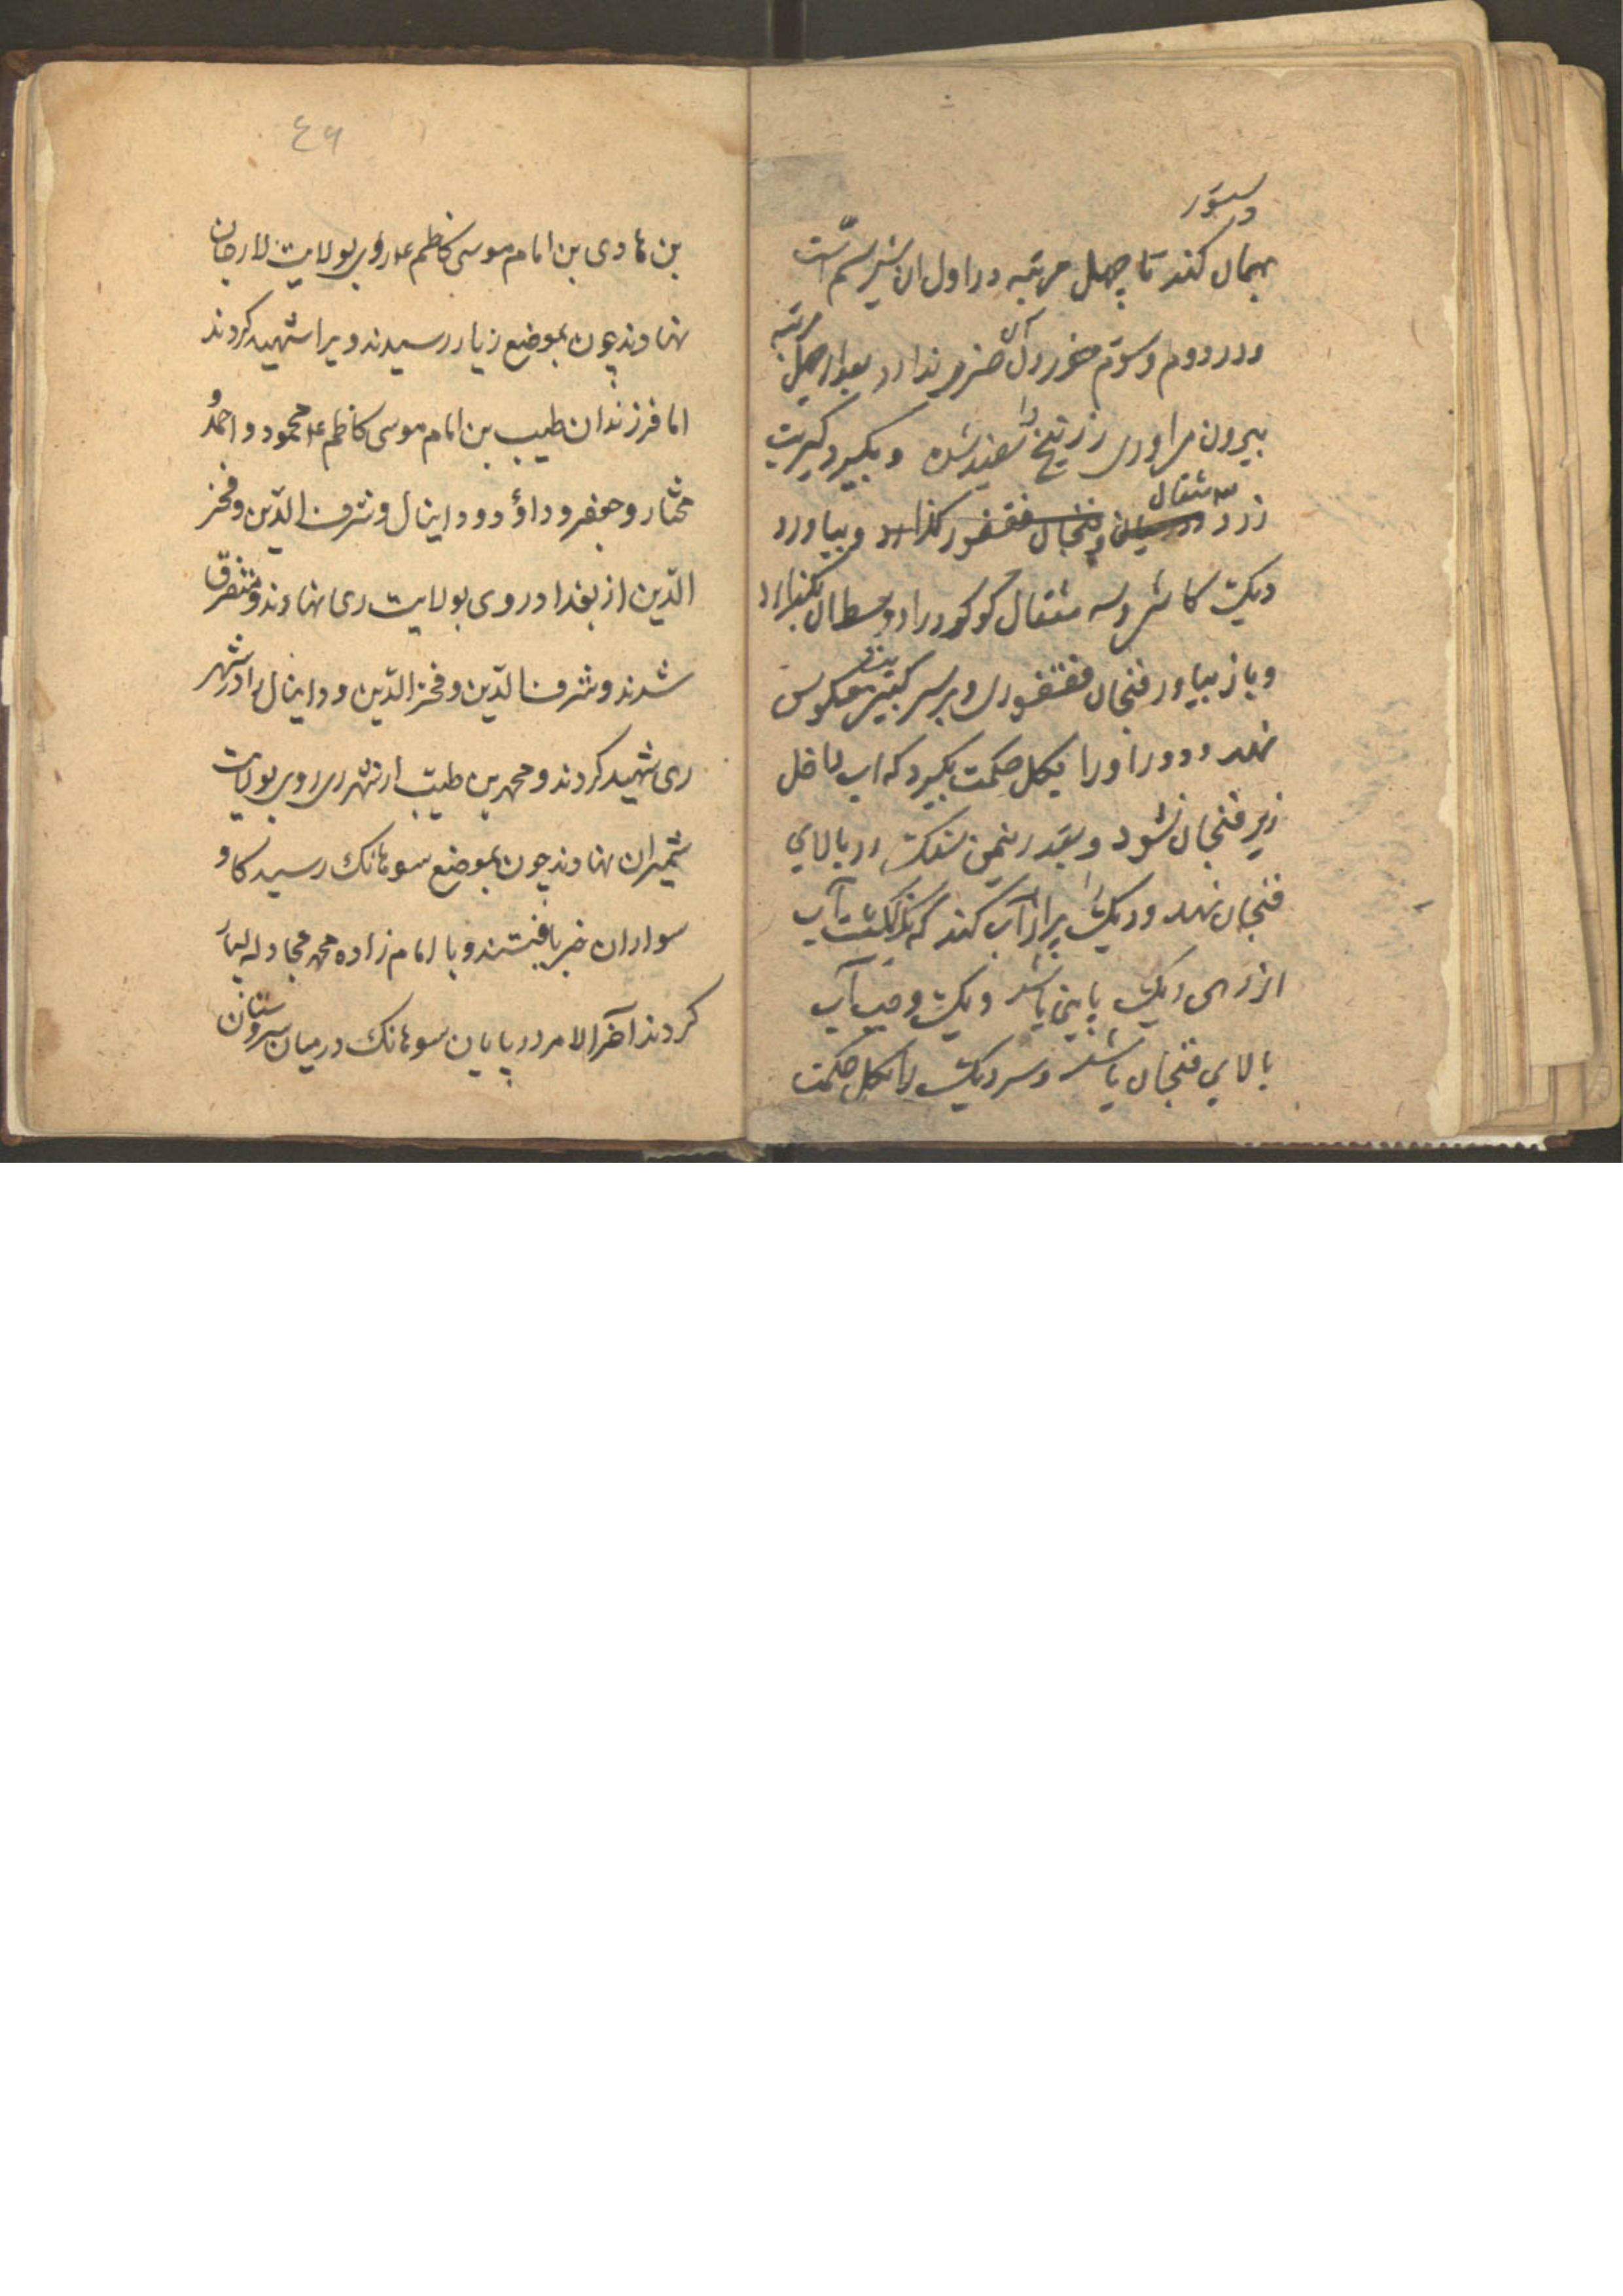 دستور
بهمان کند تا چهل مرتبه در اول ان شیر سم است
و در دووم و سوّم خوردن آن ضرر ندارد بعد از چهل مرتبه
بیرون می اوری زرنیخ را سفید شده و بگیرد کبریت
زرد سه مثقال در میان فنجال فقفور گذارد و بیاورد
دیک کاشی و سه مثقال گوگرد را در وسط ان بگذارد
و باز بیاور فنجان فقفوری و بر سر کبریت معکوس
نهد و دور او را بگل حکمت بگیرد که اب داخل
زیر فنجان نشود و بقدر نیمن سنک در بالای
فنجان نهد و دیک را پر از آب کند که آب
از دهن دیک پایین باشد و یک وجب آب
بالای فنجان باشد و سر دیک را بگل حکمت
٤٦
بن هادی بن امام موسی کاظم ع روی بولایت لارجان
نهادند چون بموضع زیار رسیدند ویرا شهید کردند
اما فرزندان طیب بن امام موسی کاظم ع محمود و احمد و
مختار و جعفر و داؤد و داینال و شرف الدّین و فخر
الدّین از بغداد روی بولایت ری نهادند و متفرق
شدند و شرف الدّین و فخر الدّین و داینال را در شهر
ری شهید کردند و محمد بن طیّب از شهر ری روی بولایت
شمیران نهادند چون بموضع سوهانک رسید کاو
سواران خبر یافتند و با امام زاده محمد مجادله بسیار
کردند آخر الامر در پایان سوهانک در میان سروستان